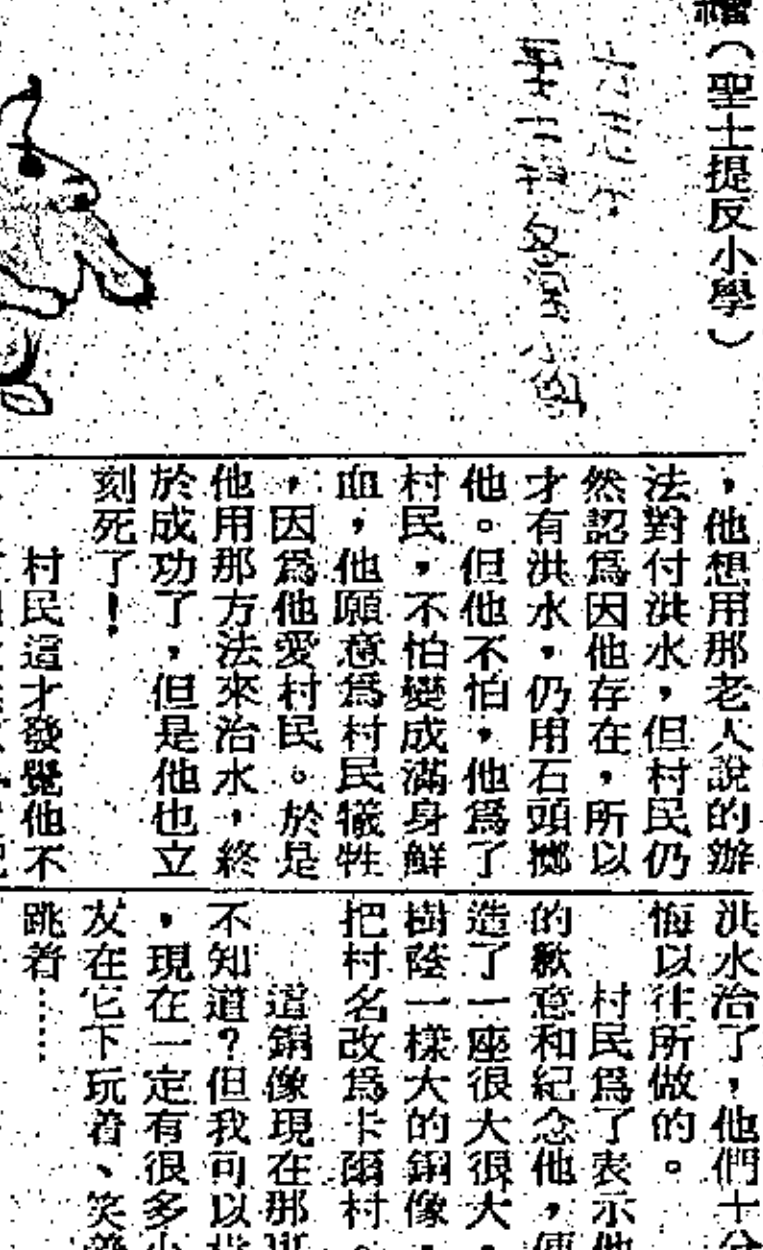 （聖士提反小學）
，他想用那老人說的辦
法對付洪水，但村民仍
然認爲因他存在，所以
才有洪水，仍用石頭擲
他。但他不怕，他爲了
村民，不怕變成滿身鮮
血，他願意爲村民犧牲
，因爲他愛村民。於是
他用那方法來治水，終
於成功了，但是他也立
刻死了！
村民這才發覺他不
洪水治了，他們十分
悔以往所做的。
村民爲了表示他
的歉意和紀念他，便
造了一座很大很大，
樹蔭一樣大的銅像，
把村名改爲卡爾村。
這銅像現在那
不知道？但我可以
，現在一定有很多小
友在它下玩着、笑着
跳着……